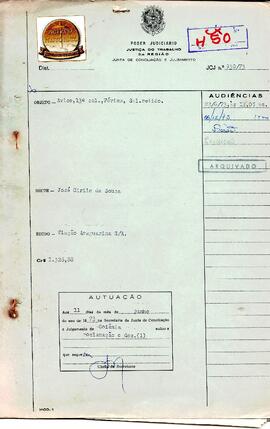 PODER JUDICIÁRIO
JUSTIÇA DO TRABALHO
DA REGIÃO
JUNTA DE CONCILIAÇÃO E JULGAMENTO
H 50
Dist.
JCJ n.º 930/73
OBJETO - Aviso, 13º sal., Férias, Sal. retido.
AUDIÊNCIAS
ARQUIVADO
RECTE - José Cirilo de Souza
RECDO - Viação Araguarina S/A.
Cr$ 1.326,88
AUTUAÇÃO
Aos 11 dias do mês de junho
do ano de 1973 na Secretaria da Junta de Conciliação
e Julgamento de Goiânia autuo a
reclamação e doc. (1)
que segue
Chefe de Secretaria
MOD. 1